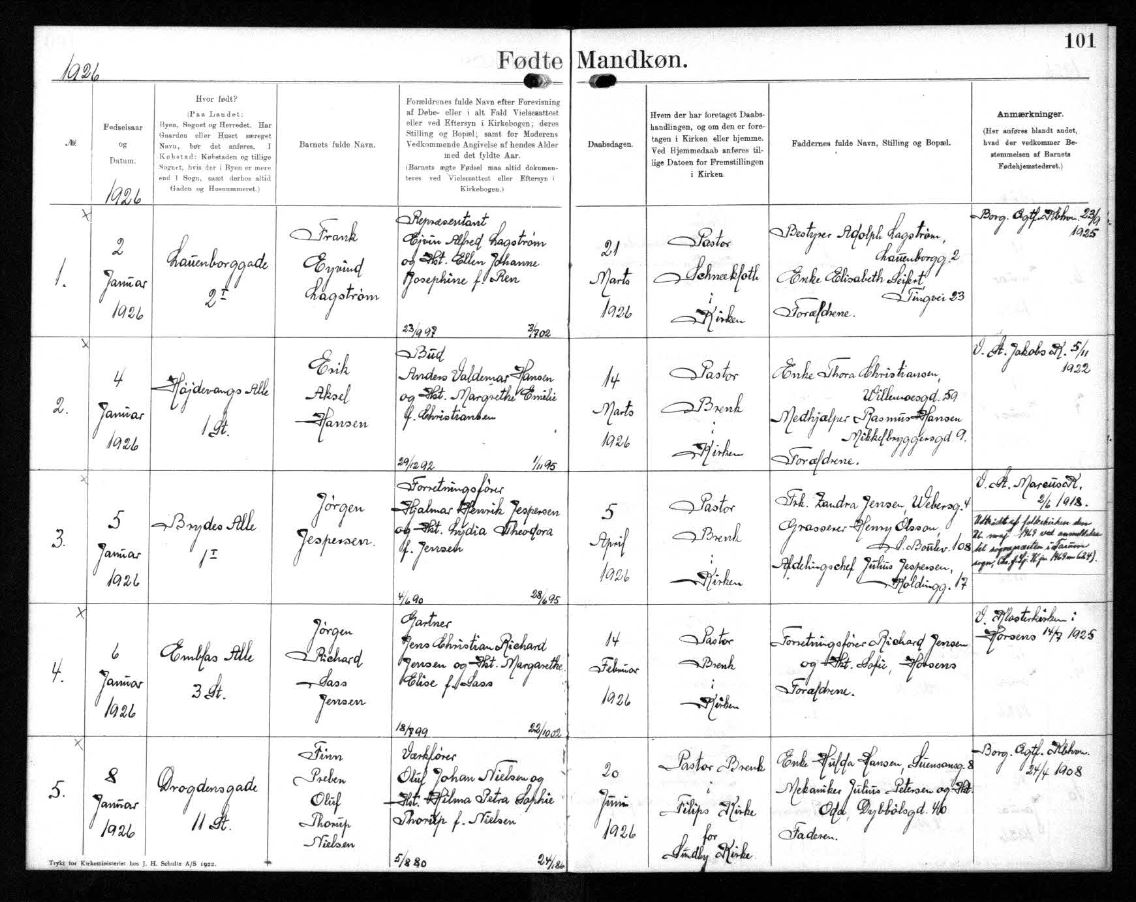 101
Fødte Mandkøn.
1926
№
Fødselsaar
og
Datum.
1926
Hvor født?
(Paa Landet:
Byen, Sognet og Herredet. Har
Gaarden eller Huset særeget
Navn, bør det anføres. I
Købstad: Købstaden og tillige
Sognet, hvis der i Byen er mere
end 1 Sogn, samt derhos altid
Gaden og Husnummeret.)
Barnets fulde Navn.
Forældrenes fulde Navn efter Forevisning
af Døbe- eller i alt Fald Vielsesattest
eller ved Eftersyn i Kirkebogen; deres
Stilling og Bopæl; samt for Moderens
Vedkommende Angivelse af hendes Alder
med det fyldte Aar.
(Barnets ægte Fødsel maa altid dokumen-
teres ved Vielsesattest eller Eftersyn i
Kirkebogen.)
Daabsdagen.
Hvem der har foretaget Daabs-
handlingen, og om den er fore-
taget i Kirken eller hjemme.
Ved Hjemmedaab anføres til-
lige Datoen for Fremstillingen
i Kirken.
Faddernes fulde Navn, Stilling og Bopæl.
Anmærkninger.
(Her anføres blandt andet,
hvad der vedkommer Be-
stemmelsen af Barnets
Fødehjemstederet.)
1.
2
Januar
1926
Lauenborggade
2 I
Frank
Eyvind
Lagström
Repræsentant
Ejvin Alfred Lagström
og Hst. Ellen Johanne
Josephine f. Ren
23/9 97
3/7 02
21
Marts
1926
Pastor
Schneekloth
i
Kirken
Bestyrer Adolph Lagström,
Lauenborgg. 2
Enke Elisabeth Seifert,
Tingvei 23
Forældrene.
Borg. Agtf. Kbhvn. 23/9
1925
2.
4
Januar
1926
Højdevangs Alle
1 St.
Erik
Aksel
Hansen
Bud
Anders Valdemar Hansen
og Hst. Margrethe Emilie
f. Christiansen
29/12 92
1/11 95
14
Marts
1926
Pastor
Brenk
i
Kirken
Enke Thora Christiansen,
Willemoesgd. 59
Medhjælper Rasmus Hansen
Mikkelbryggersgd 9.
Forældrene.
V. St. Jakobs K. 5/11
1922
3.
5
Januar
1926
Brydes Alle
1 I
Jörgen
Jespersen.
Forretningsfører
Hjalmar Henrik Jespersen
og Hst. Lydia Theodora
f. Jensen
4/6 90
28/6 95
5
April
1926
Pastor
Brenk
i
Kirken
Frk. Zandra Jensen, Webersg. 4
Grosserer Henry Olsson,
S. Boulev. 108
Afdelingschef Julius Jespersen,
Koldingg. 17
V. St. Marcus K.
2/6 1918.
Udtrådt af folkekirken den
4.
6
Januar
1926
Emblas Alle
3 St.
Jörgen
Richard
Sass
Jensen
Gartner
Jens Christian Richard
Jensen og Hst. Margarethe
Elise f. Sass
18/7 99
22/10 02
14
Februar
1926
Pastor
Brenk
i
Kirken
Forretningsfører Richard Jensen
og Hst. Sofie, Horsens
Forældrene.
V. Klosterkirken i
Horsens 14/7 1925
5.
8
Januar
1926
Drogdensgade
11 St.
Finn
Preben
Oluf
Thorup
Nielsen
Værkfører
Oluf Johan Nielsen og
Hst. Helma Petra Sophie
Thorup f. Nielsen
5/8 80
24/1 86
20
Juni
1926
Pastor Brenk
i
Filips Kirke
for
Sundby Kirke
Enke Hulda Hansen, Suensonsg. 8
Mekaniker Julius Petersen og Hst.
Oda, Dybbölsgd. 40
Faderen.
Borg. Agtf. Kbhvn.
24/4 1908
Trykt for Kirkeministeriet hos J. H. Schultz A/S 1922.